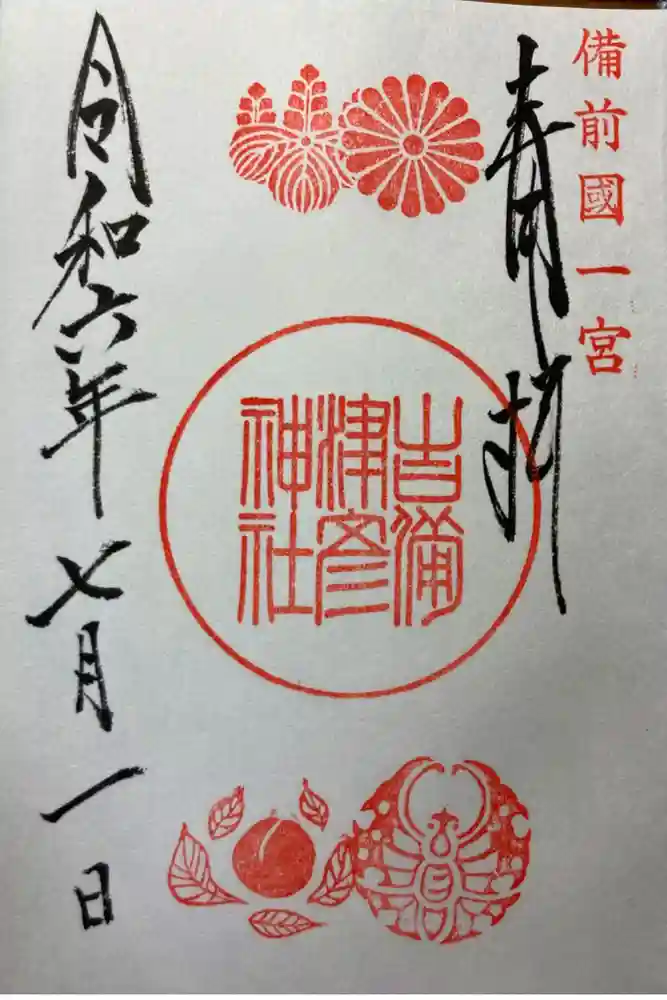 備前國一宮
奉拝
吉備
津彦
神社
令和六年七月一日